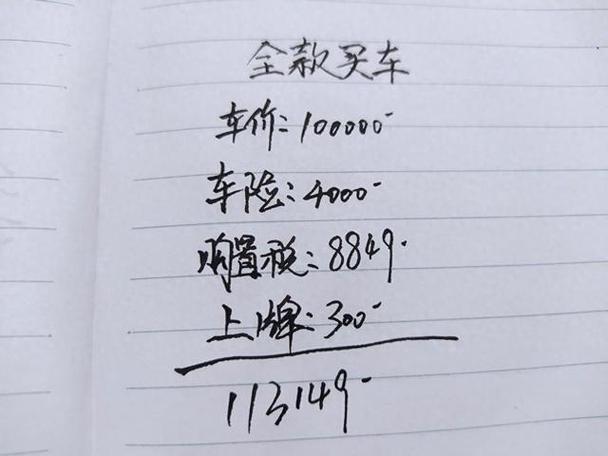 全款买车
车价:100000-
车险:4000-
购置税:8849.
上牌:300-
113149-